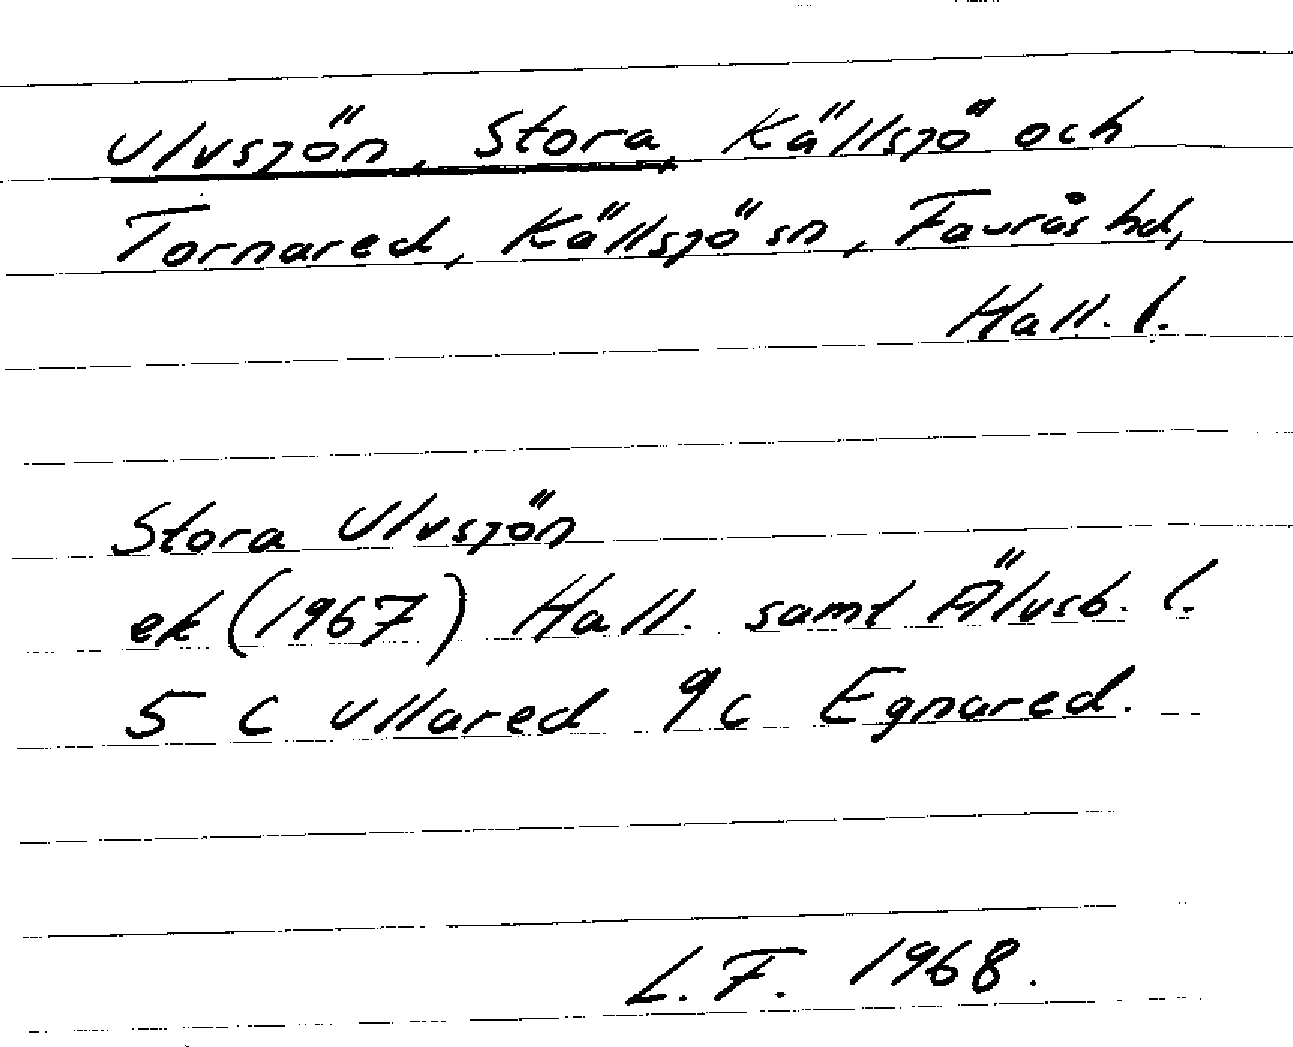 Ulvsjön, Stora, Källsjö och
Tornared, Källsjö sn, Faurås hd,
Hall. l.
Stora Ulvsjön
ek (1967) Hall. samt Älvsb. l.
5 C Ullared 9c Egnared.
L.F. 1968.